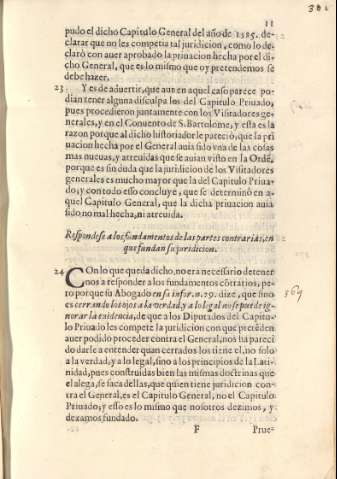 11
pudo el dicho Capitulo General del año de 1585. de-
clarar que no les competia tal juridicion, como lo de-
claró con auer aprobado la priuacion hecha por el di-
cho General, que es lo mismo que oy pretendemos se
debe hazer.
23 Y es de aduertir, que aun en aquel caso parece po-
dian tener alguna disculpa los del Capitulo Priuado,
pues procedieron juntamente con los Visitadores ge-
nerales, y en el Conuento de S. Bartolome, y esta es la
razon porque al dicho historiador le pareciò, que la pri
uacion hecha por el General auia sido vna de las cosas
mas nueuas, y atreuidas que se auian visto en la Ordẽ,
porque es sin duda que la juridicion de los Visitadores
generales es mucho mayor que la del Capitulo Priua-
do, y con todo esso concluye, que se determinò en a-
quel Capitulo General, que la dicha priuacion auia
sido no mal hecha, ni atreuida.
Respondese a los fundamentos de las partes contrarias, en
que fundan su juridicion.
24 COn lo que queda dicho, no era necessario detener
nos a responder a los fundamentos cõtrarios, pe-
ro porque su Abogado en su infor. n. 79. dize, que sino
es cerrando los ojos a la verdad, y a lo legal no se puede ig-
norar la euidencia, de que a los Diputados del Capitu-
lo Priuado les compete la juridicion con que pretẽden
auer podido proceder contra el General, nos ha pareci
do darle a entender quan cerrados los tiene el, no solo
a la verdad, y a lo legal, sino a los principios de la Lati-
nidad, pues construidas bien las mismas doctrinas que
el alega, se saca dellas, que quien tiene juridicion con-
tra el General, es el Capitulo General, no el Capitulo
Priuado, y esso es lo mismo que nosotros dezimos, y
dexamos fundado.
F Prue-